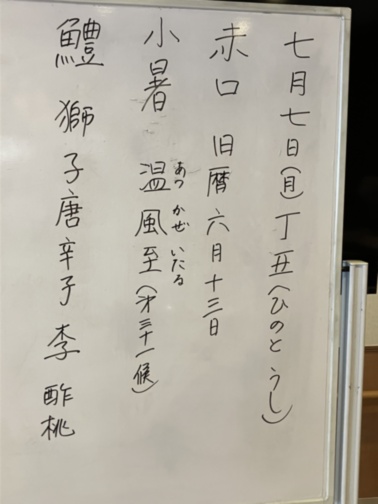 七月七日(月)丁丑(ひのとうし)
赤口 旧暦六月十三日
小暑 温風至(第三十一候)
あつかぜいたる
鱧 獅子唐辛子 李 酢桃